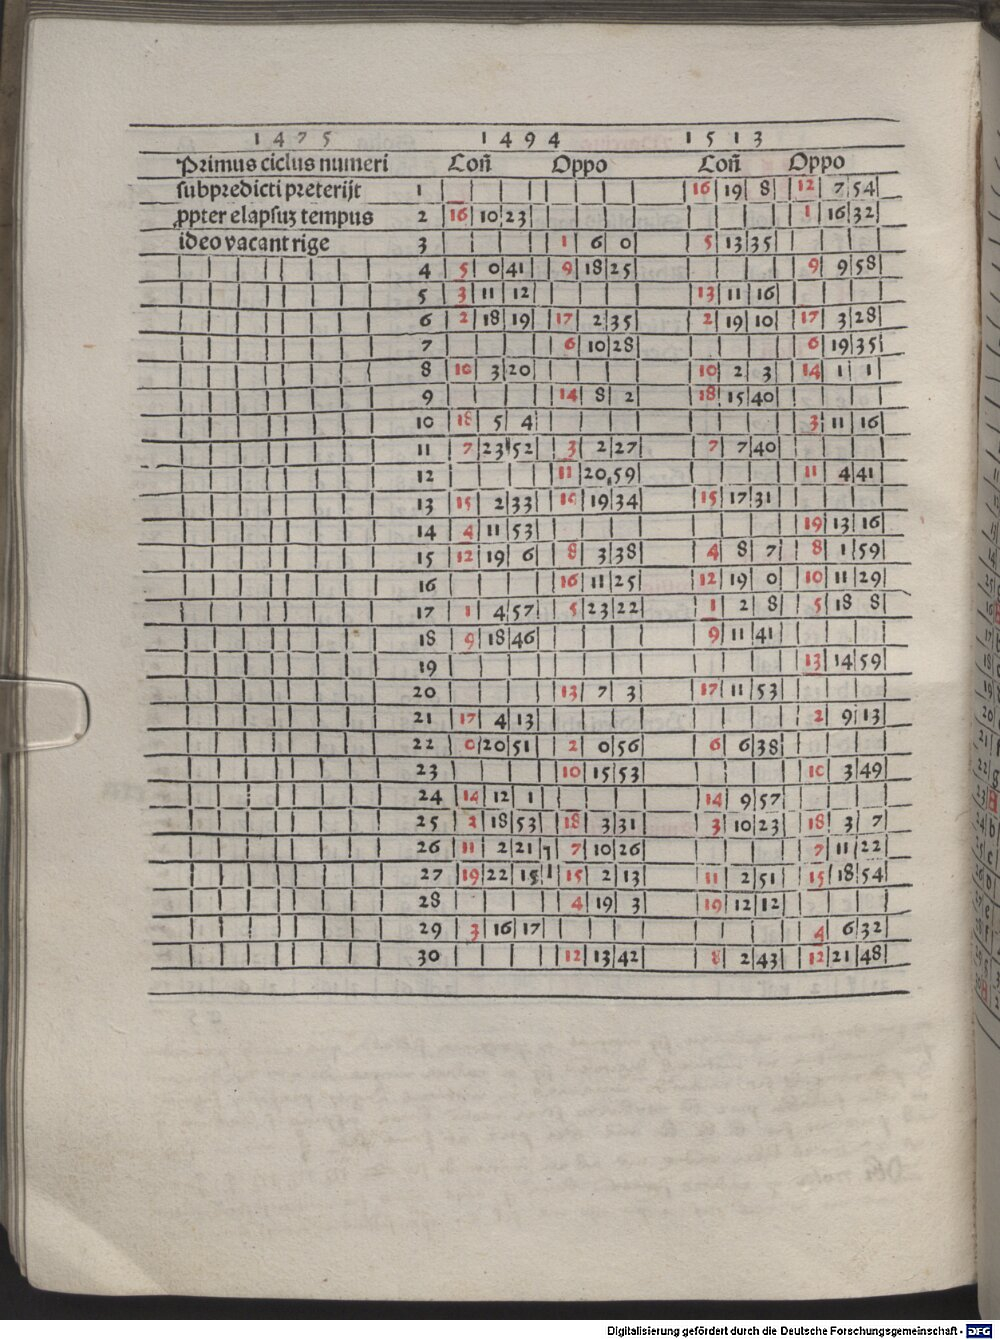 1475 1494 1513
Primus ciclus numeri Coñ Oppo Coñ Oppo
subpredicti preterijt 1 16 19 8 12 7 54
ꝓpter elapsuȝ tempus 2 16 10 23 1 16 32
ideo vacant rige 3 1 6 0 5 13 35
4 5 0 41 9 18 25 9 9 58
5 3 11 12 13 11 16
6 2 18 19 17 2 35 2 19 10 17 3 28
7 6 10 28 6 19 35
8 10 3 20 10 2 3 14 1 1
9 14 8 2 18 15 40
10 18 5 4 3 11 16
11 7 23 52 3 2 27 7 7 40
12 11 20 59 11 4 41
13 15 2 33 19 34 15 17 31
14 4 11 53 19 13 16
15 12 19 6 8 3 38 4 8 7 8 1 59
16 16 11 25 12 19 0 10 11 29
17 1 4 57 5 23 22 1 2 8 5 18 8
18 9 18 46 9 11 41
19 13 14 59
20 13 7 3 17 11 53
21 17 4 13 2 9 13
22 0 20 51 2 0 56 6 6 38
23 10 15 53 10 3 49
24 14 12 1 14 9 57
25 2 18 53 18 3 31 3 10 23 18 3 7
26 11 2 21 7 10 26 7 11 22
27 19 22 15 15 2 13 11 2 51 15 18 54
28 4 19 3 19 12 12
29 3 16 17 4 6 32
30 12 13 42 8 2 43 12 21 48
Digitalisierung gefördert durch die Deutsche Forschungsgemeinschaft - DFG